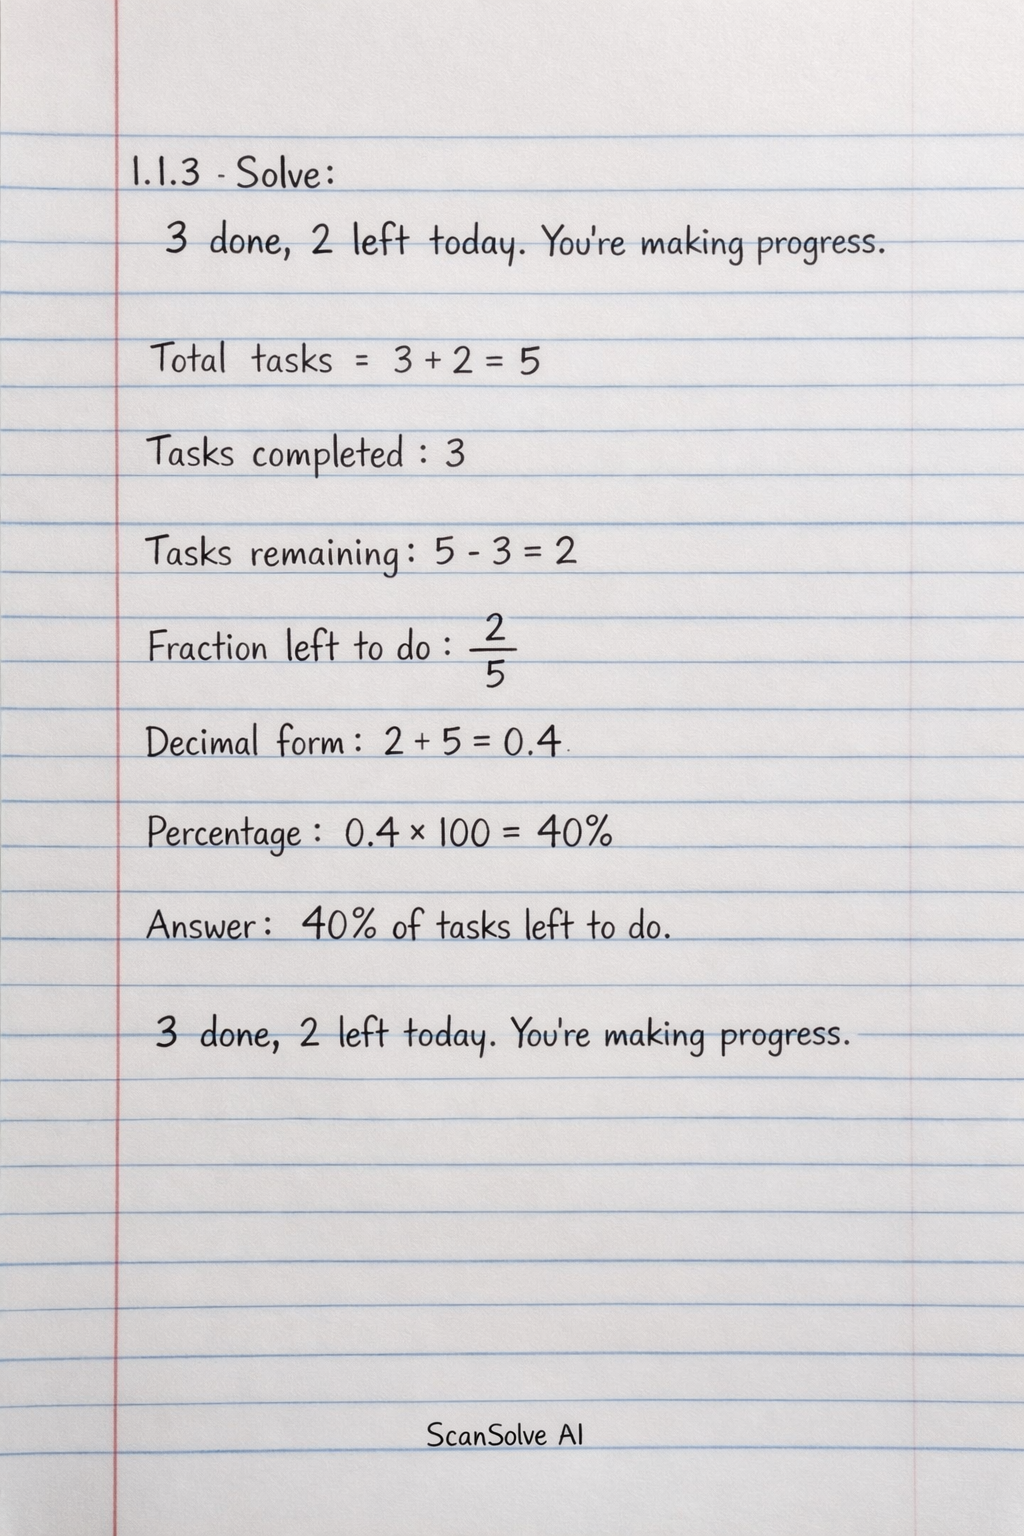 1.1.3 - Solve:
3 done, 2 left today. You're making progress.
Total tasks = 3 + 2 = 5
Tasks completed : 3
Tasks remaining: 5 - 3 = 2
Fraction left to do : 2/5
Decimal form : 2 + 5 = 0.4.
Percentage : 0.4 × 100 = 40%
Answer: 40% of tasks left to do.
3 done, 2 left today. You're making progress.
ScanSolve AI